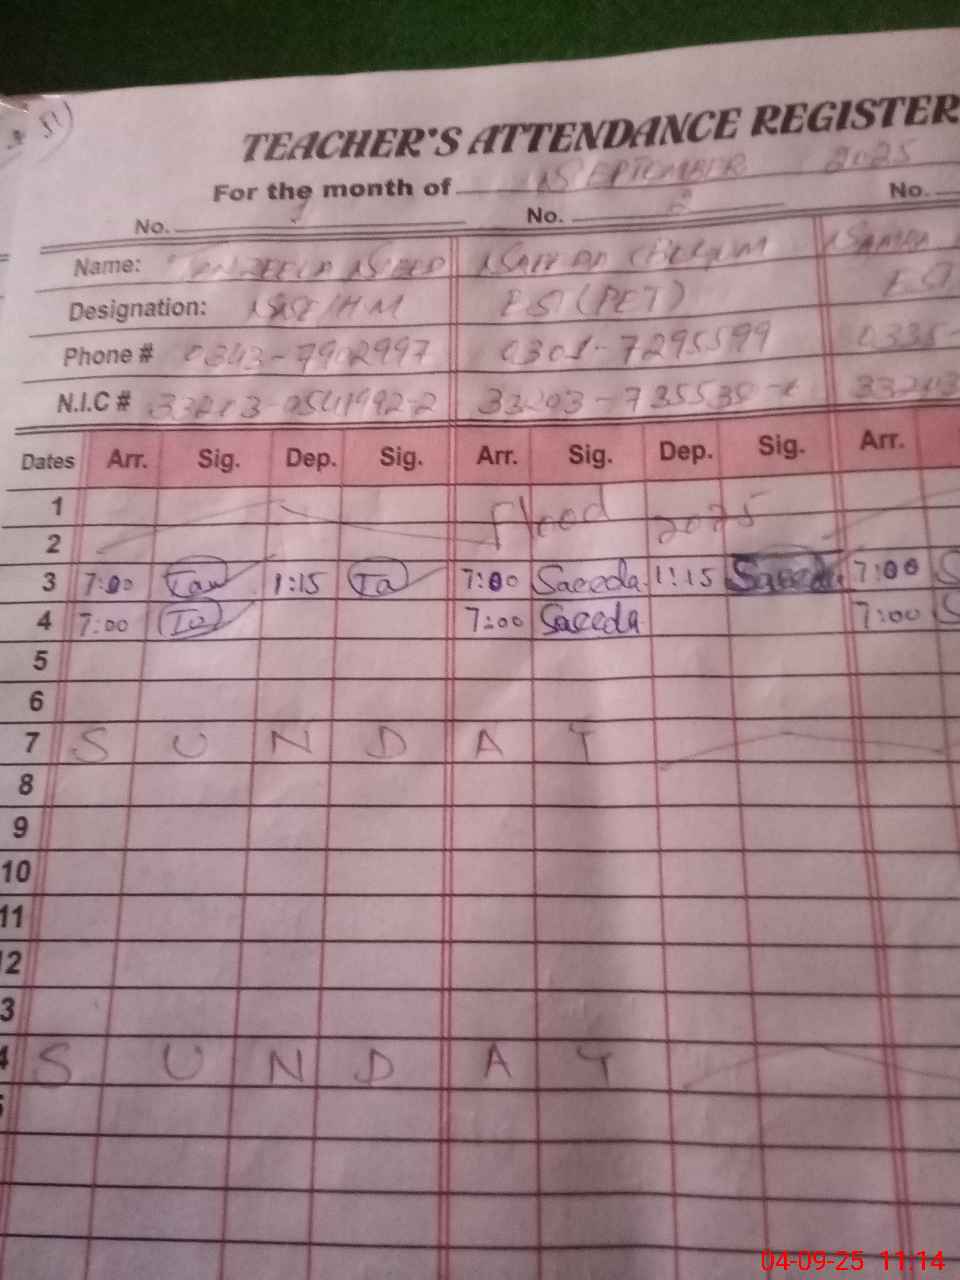 51)
TEACHER'S ATTENDANCE REGISTER
For the month of SEPTEMBER 2025
No. 1 No. 2 No.
Name:
Designation: SSE/HM PST (PET)
Phone # 0343-7902997 0301-7295599 0335-
N.I.C # 33203-0541992-2 33203-
Dates Arr. Sig. Dep. Sig. Arr. Sig. Dep. Sig. Arr.
1 flood 2025
2
3 7:00 1:15 Ta 7:00 Saeeda 1:15 Saeeda 7:00 S
4 7:00 7:00 Saeeda 7:00 S
5
6
7 S U N D A Y
8
9
10
11
12
3
4 S U N D A Y
5
04-09-25 11:14